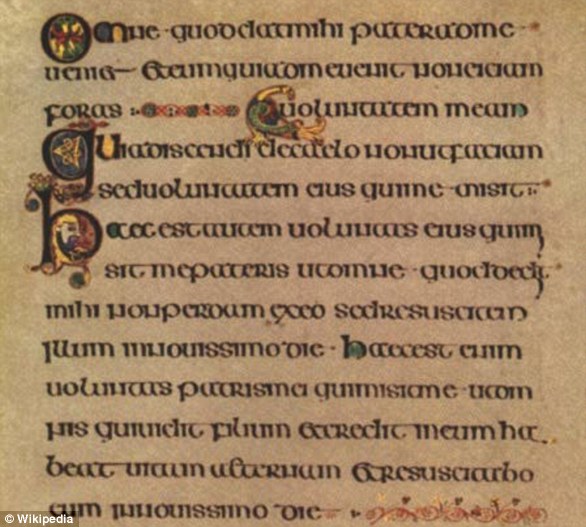 Omne · quod dat mihi pater ad me ·
ueniet & eum qui ad me uenit non eiciam
foras : uoluntatem meam
Quia discendi de caelo non ut faciam
sed uoluntatem eius qui me · misit ·
haec est autem uoluntas eius qui mi
sit me pateris ut omne · quod dedit
mihi non perdam ex eo sed resuscitem
illum in nouissimo die · haec est enim
uoluntas patris mei qui misit me · ut om
nis qui uidit filium & credit in eum ha
beat uitam aeternam & resuscitabo
eum in nouissimo die ·
© Wikipedia